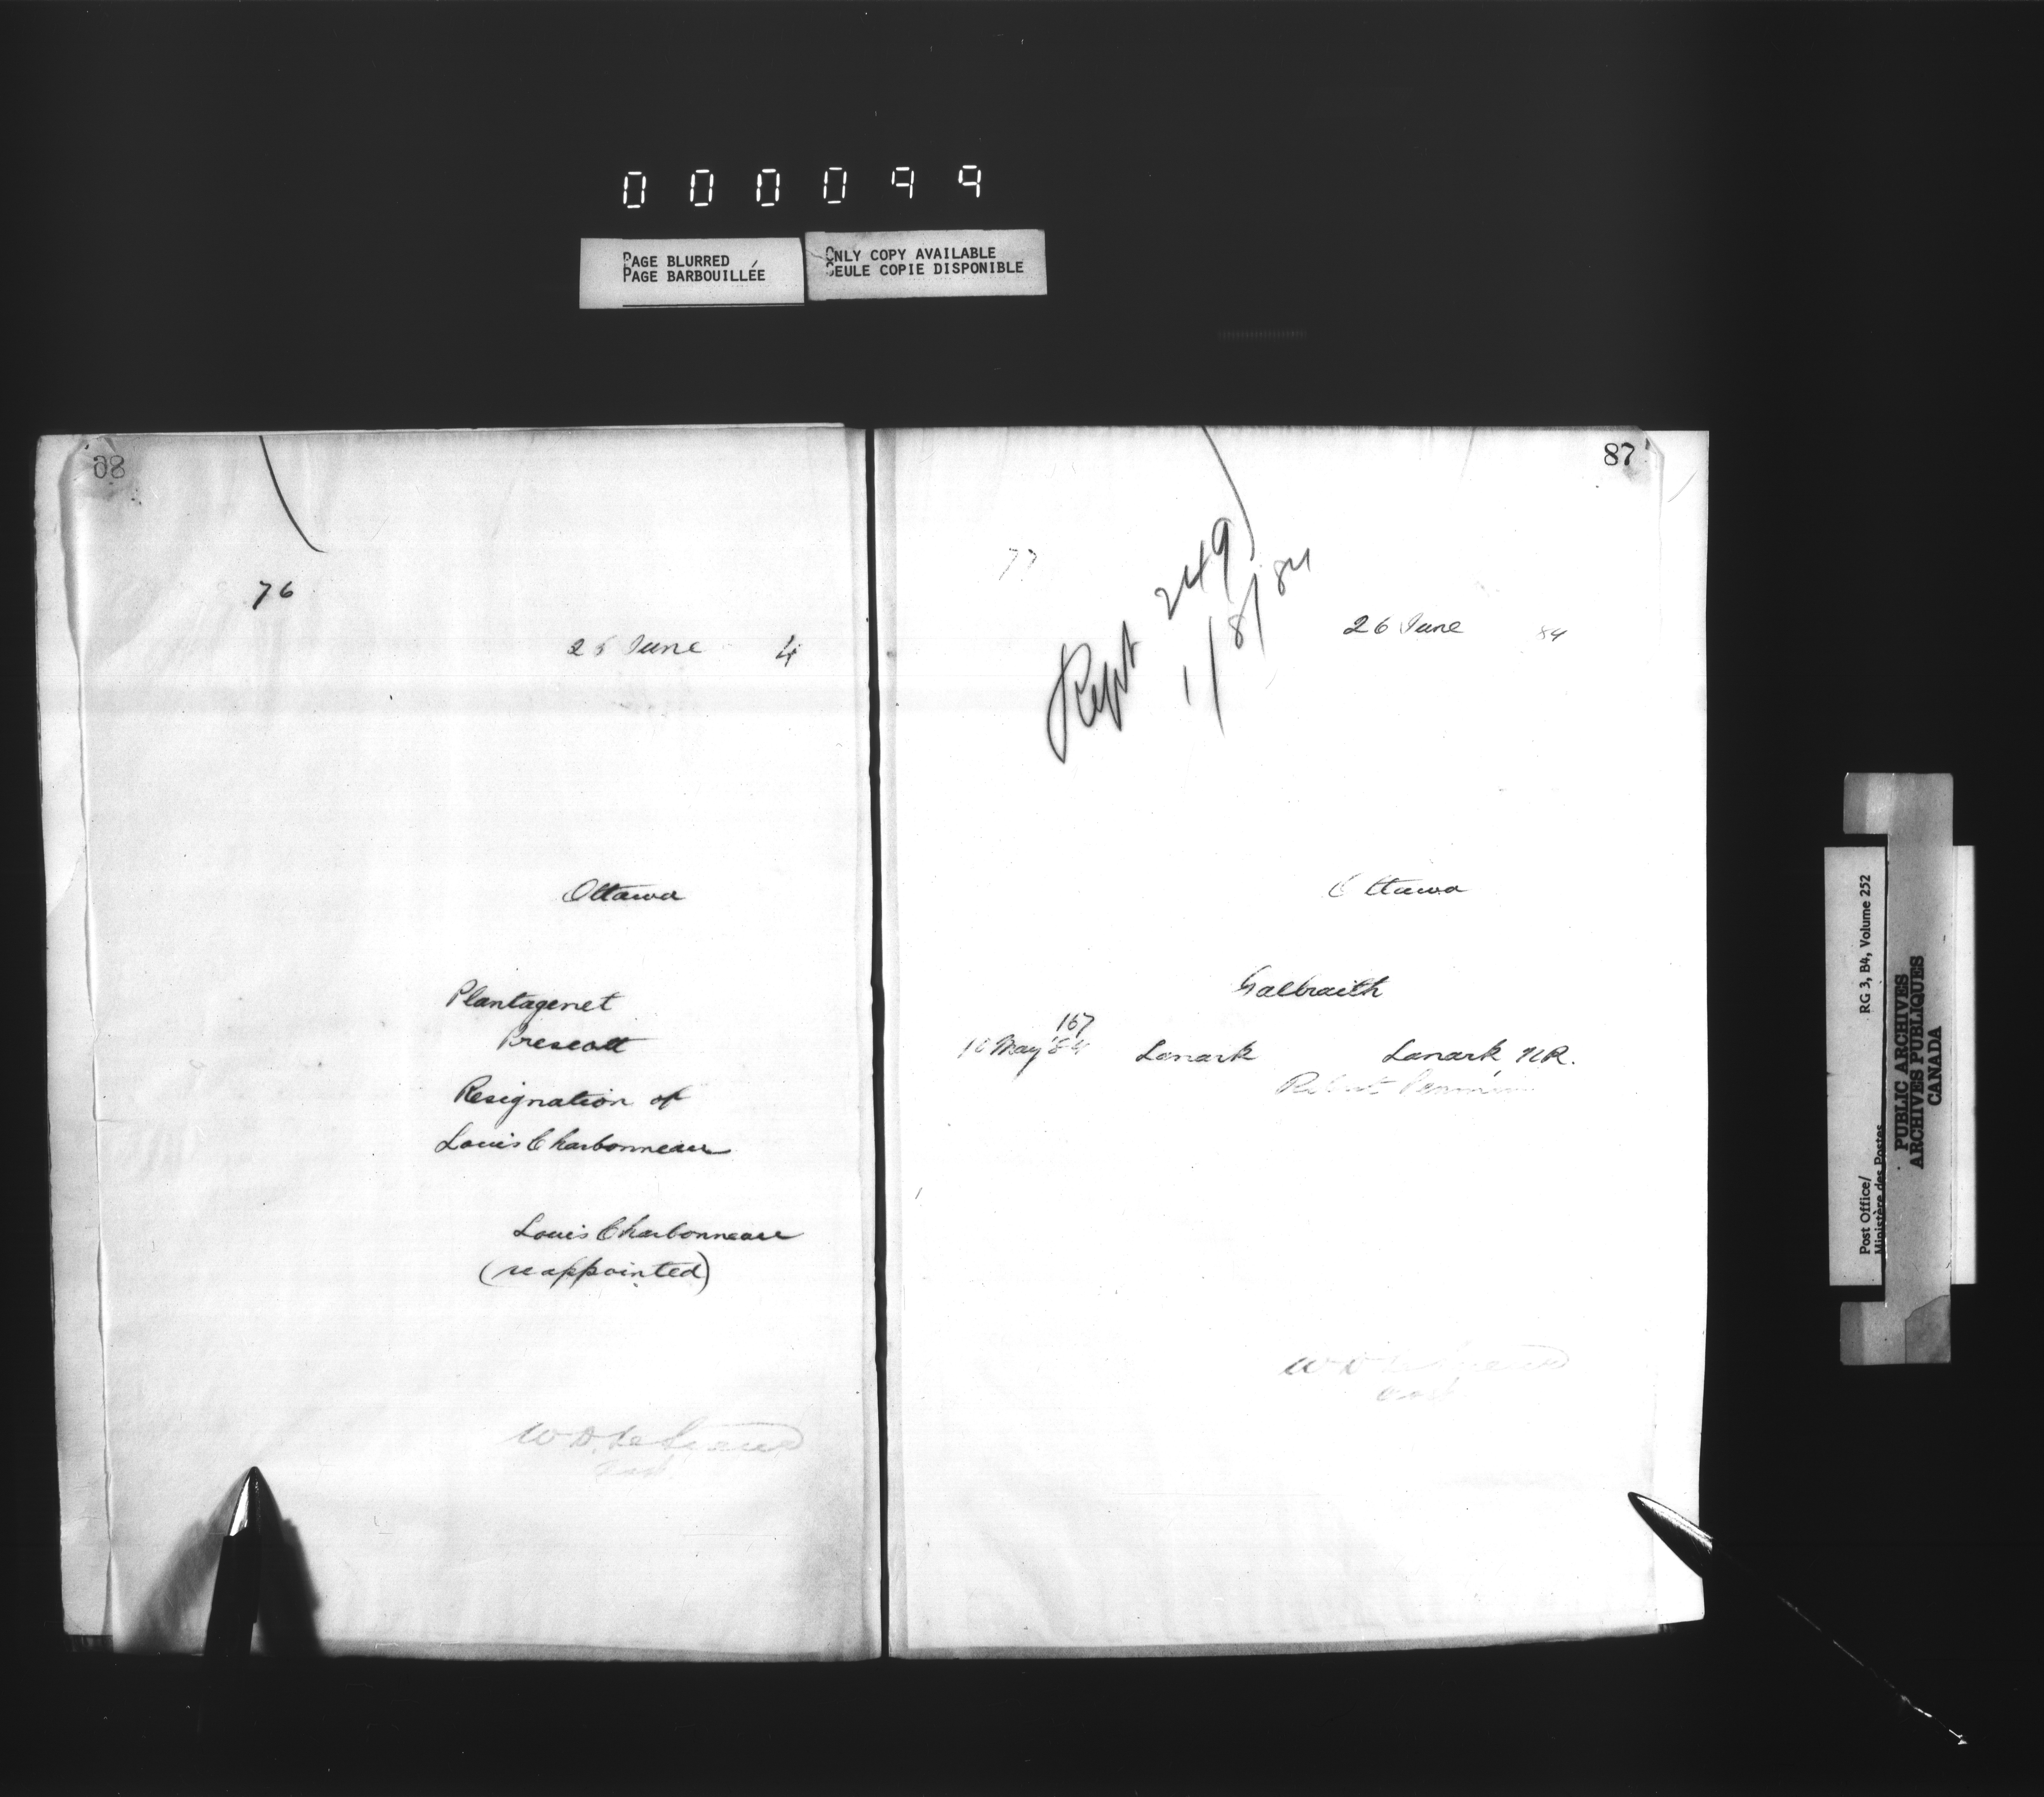 000099
PAGE BLURRED
PAGE BARBOUILLÉE
ONLY COPY AVAILABLE
SEULE COPIE DISPONIBLE
76
26 June 4
Ottawa
Plantagenet
Prescott
Resignation of
Louis Charbonneau
Louis Charbonneau
(reappointed)
W D. LeSueur
87
77
Rept 249
1/8/84
26 June 84
Ottawa
Galbraith
167
May 84 Lanark Lanark N.R.
Robert
W D LeSueur
Post Office/
Ministère des Postes
RG 3, B4, Volume 252
PUBLIC ARCHIVES
ARCHIVES PUBLIQUES
CANADA